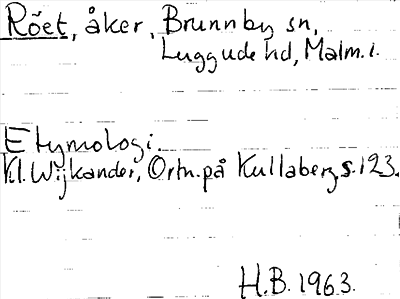 Röet, åker, Brunnby sn,
Luggude hd, Malm. l.
Etymologi.
Kl. Wijkander, Ortn. på Kullaberg s. 123.
H.B. 1963.